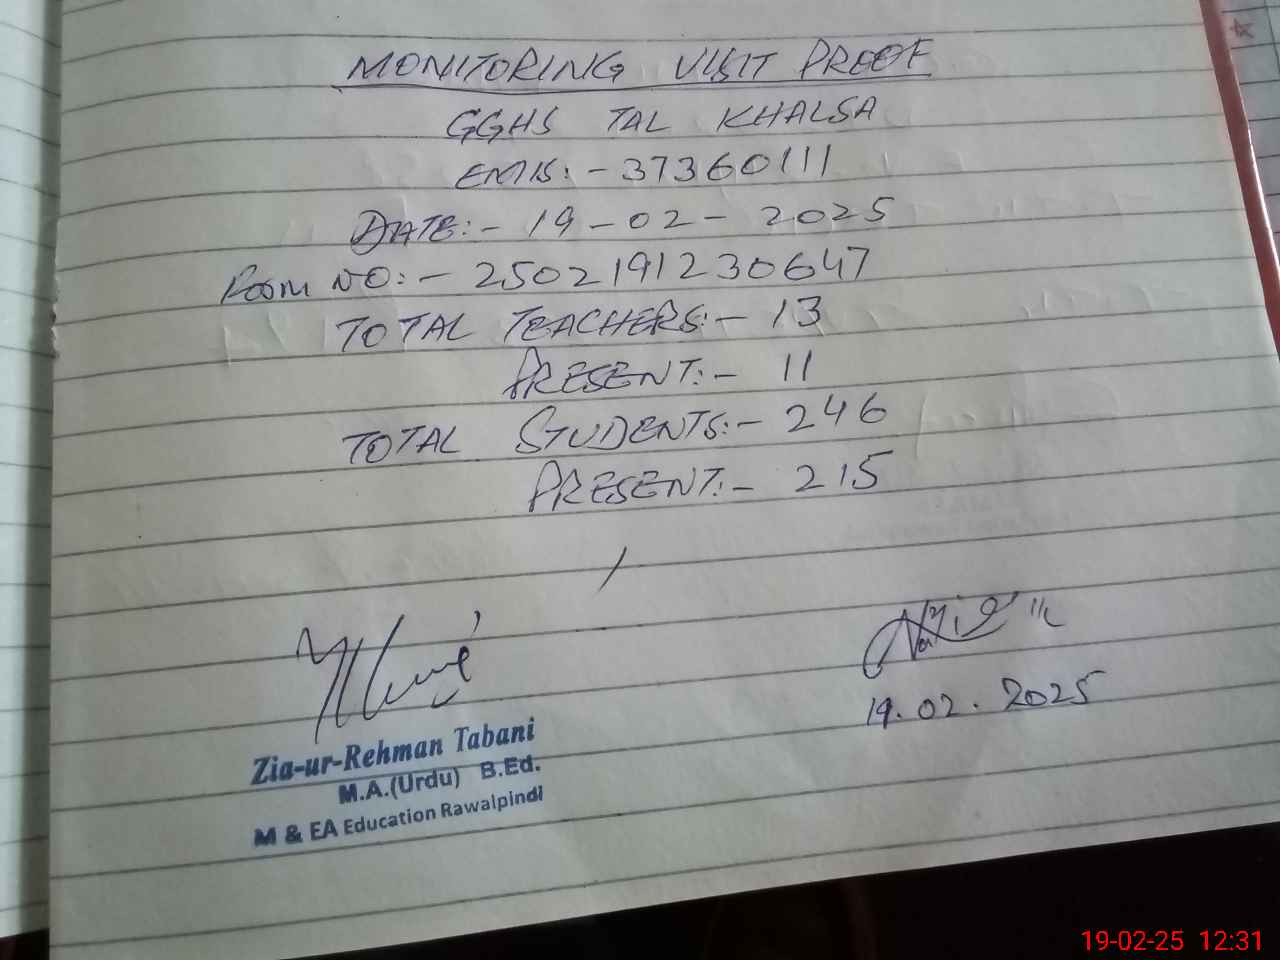 MONITORING VISIT PROOF
GGHS TAL KHALSA
EMIS:- 37360111
DATE:- 19-02-2025
ROOM NO:- 2502191230647
TOTAL TEACHERS:- 13
PRESENT:- 11
TOTAL STUDENTS:- 246
PRESENT:- 215
19.02.2025
Zia-ur-Rehman Tabani
M.A.(Urdu) B.Ed.
M & EA Education Rawalpindi
19-02-25 12:31